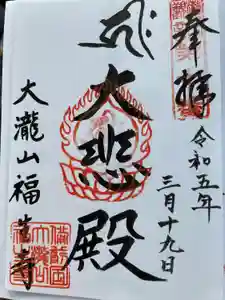 奉拝
令和五年
三月十九日
大悲殿
大瀧山福生寺